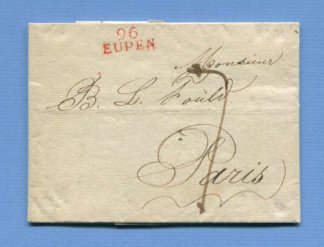 96
EUPEN
Monsieur
B. L. Fould
à
Paris
7